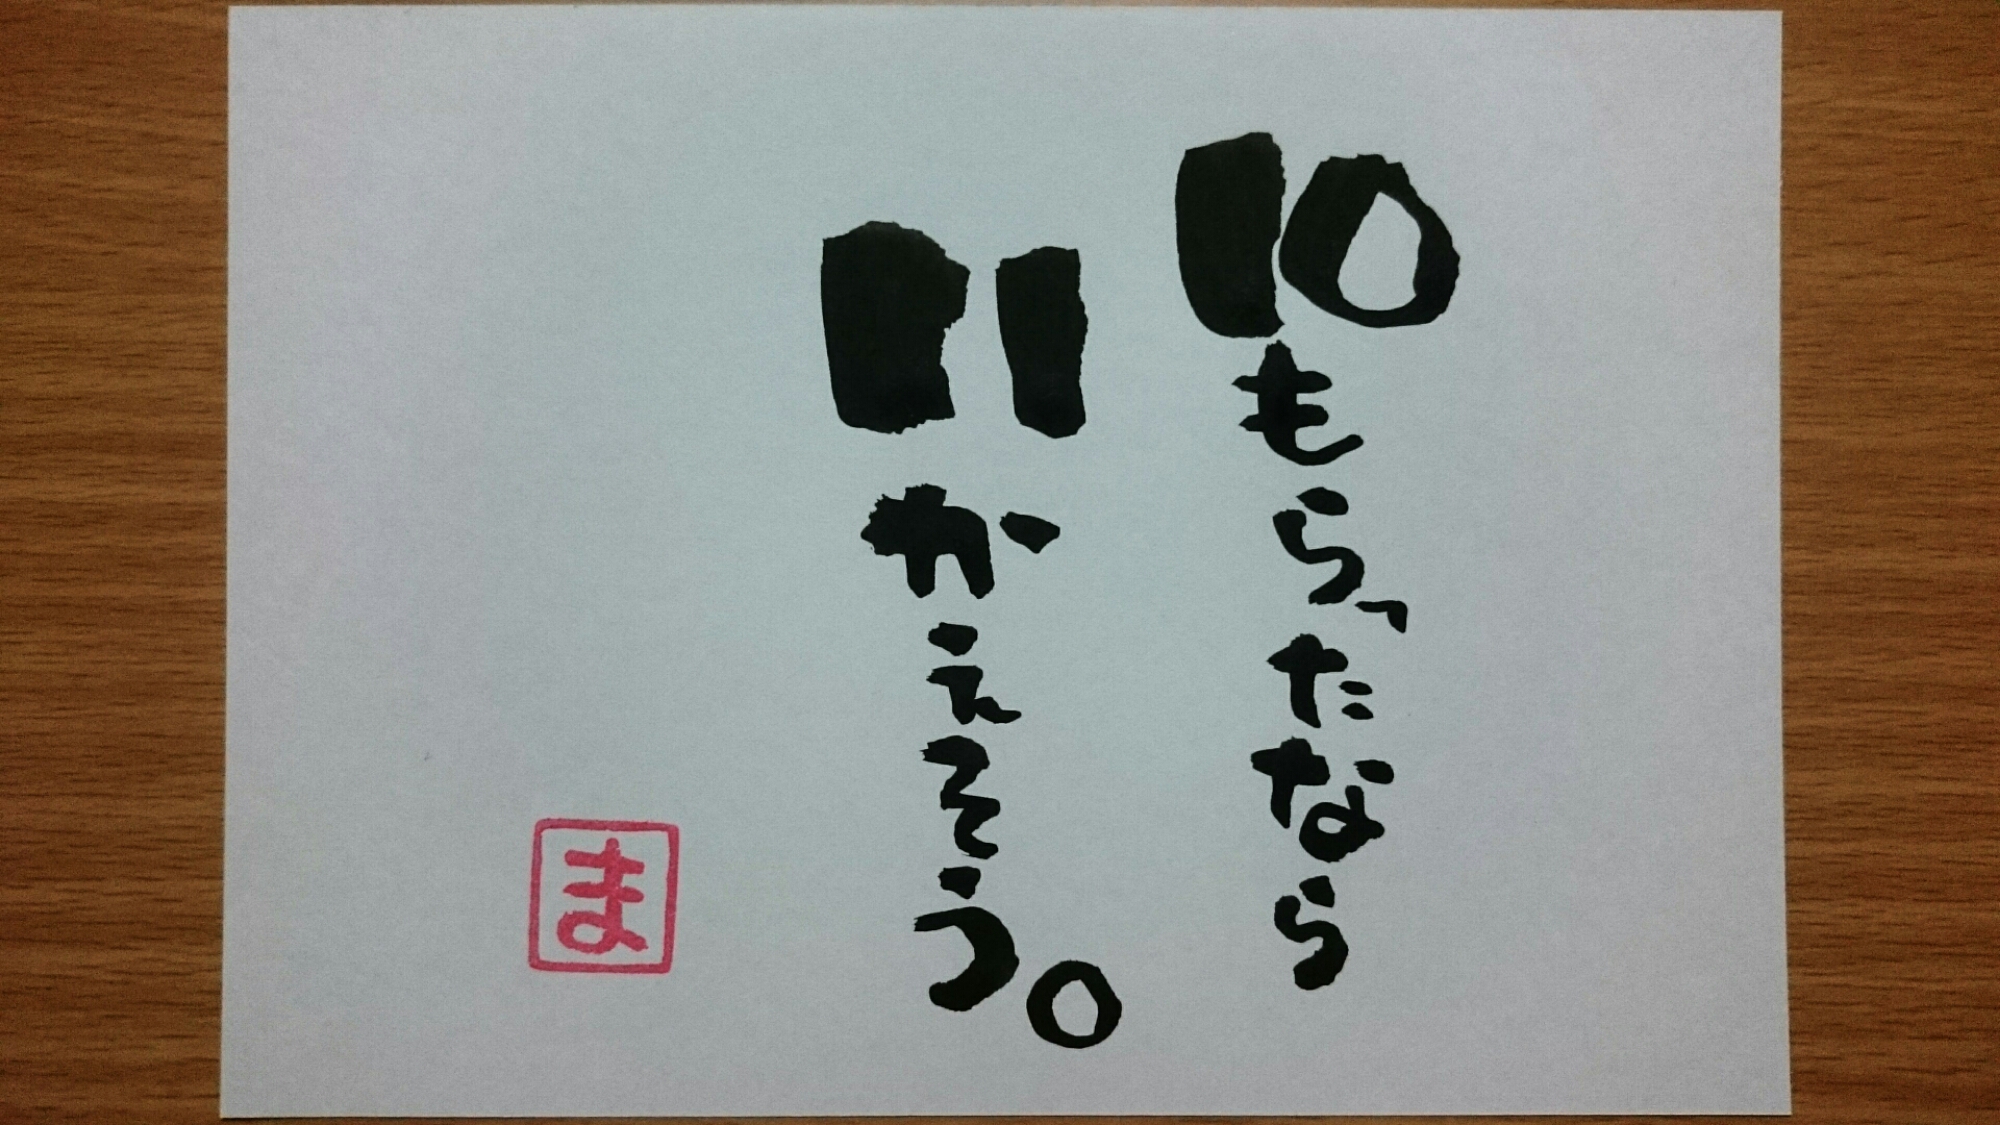 10もらったなら
11かえそう。
ま